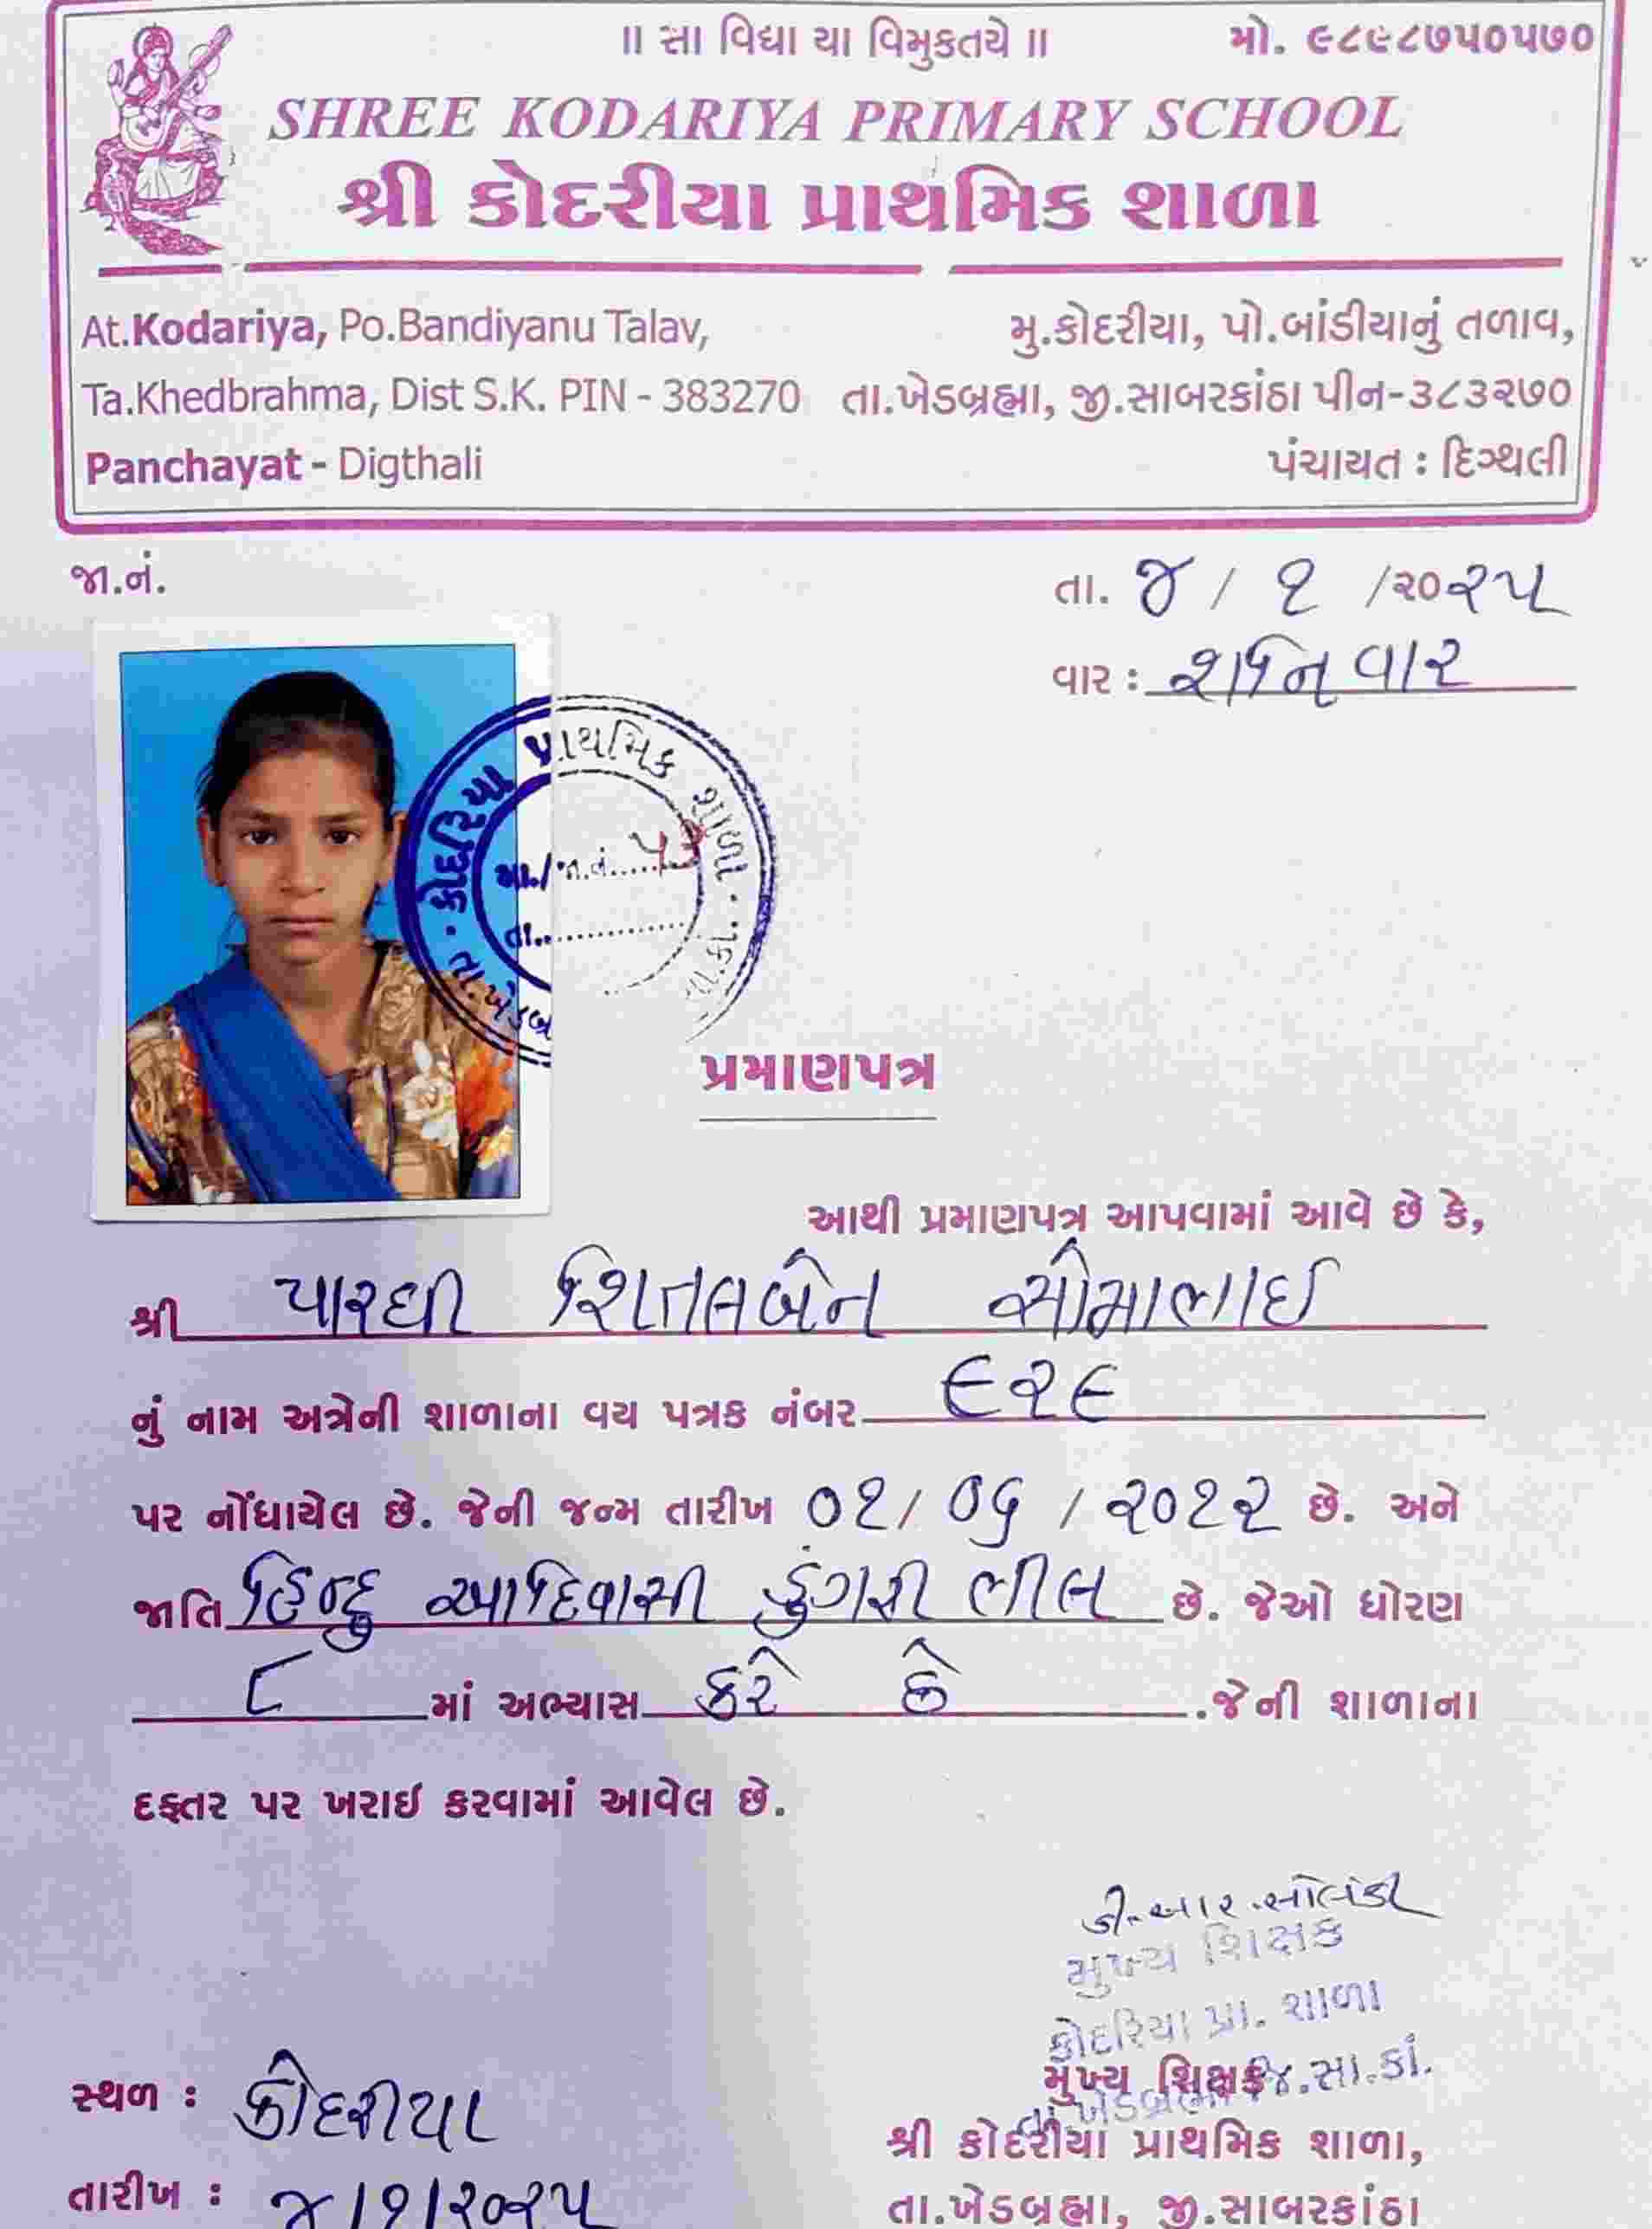 ॥ સા વિદ્યા યા વિમુકતયે ॥ મો. ૯૮૯૮૭૫૦૫૭૦
SHREE KODARIYA PRIMARY SCHOOL
શ્રી કોદરીયા પ્રાથમિક શાળા
At.Kodariya, Po.Bandiyanu Talav, મુ.કોદરીયા, પો.બાંડીયાનું તળાવ,
Ta.Khedbrahma, Dist S.K. PIN - 383270 તા.ખેડબ્રહ્મા, જી.સાબરકાંઠા પીન-૩૮૩૨૭૦
Panchayat - Digthali પંચાયત : દિગ્થલી
જા.નં. તા. ૪ / ૧ /૨૦૨૫
વાર : શનિવાર
કોદરિયા પ્રાથમિક શાળા
આ./જા.નં.....૫૨
તા...............
તા.ખેડબ્ર
પ્રમાણપત્ર
આથી પ્રમાણપત્ર આપવામાં આવે છે કે,
શ્રી પારઘી શિતલબેન સોમાભાઈ
નું નામ અત્રેની શાળાના વય પત્રક નંબર ૯૨૯
પર નોંધાયેલ છે. જેની જન્મ તારીખ ૦૧/ ૦૬ / ૨૦૧૨ છે. અને
જાતિ હિન્દુ આદિવાસી ડુંગરી ભીલ છે. જેઓ ધોરણ
૮ માં અભ્યાસ કરે છે .જેની શાળાના
દફતર પર ખરાઇ કરવામાં આવેલ છે.
ડી.આર.સોલંકી
મુખ્ય શિક્ષક
કોદરિયા પ્રા. શાળા
તા.ખેડબ્રહ્મા જી.સા.કાં.
સ્થળ : કોદરીયા
મુખ્ય શિક્ષક
શ્રી કોદરીયા પ્રાથમિક શાળા,
તારીખ : ૪/૧/૨૦૨૫
તા.ખેડબ્રહ્મા, જી.સાબરકાંઠા